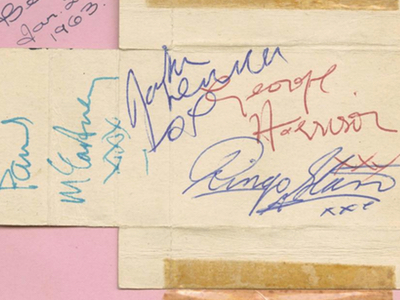 Be
Jan 2
1963.
Paul
McCartney
xxx
John
Lennon
George
Harrison
xxx
Ringo Starr
xxx